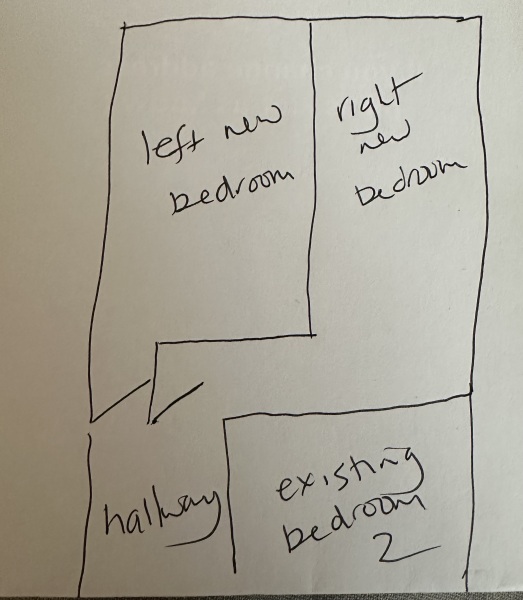 left new
bedroom
right
new
bedroom
hallway
existing
bedroom
2